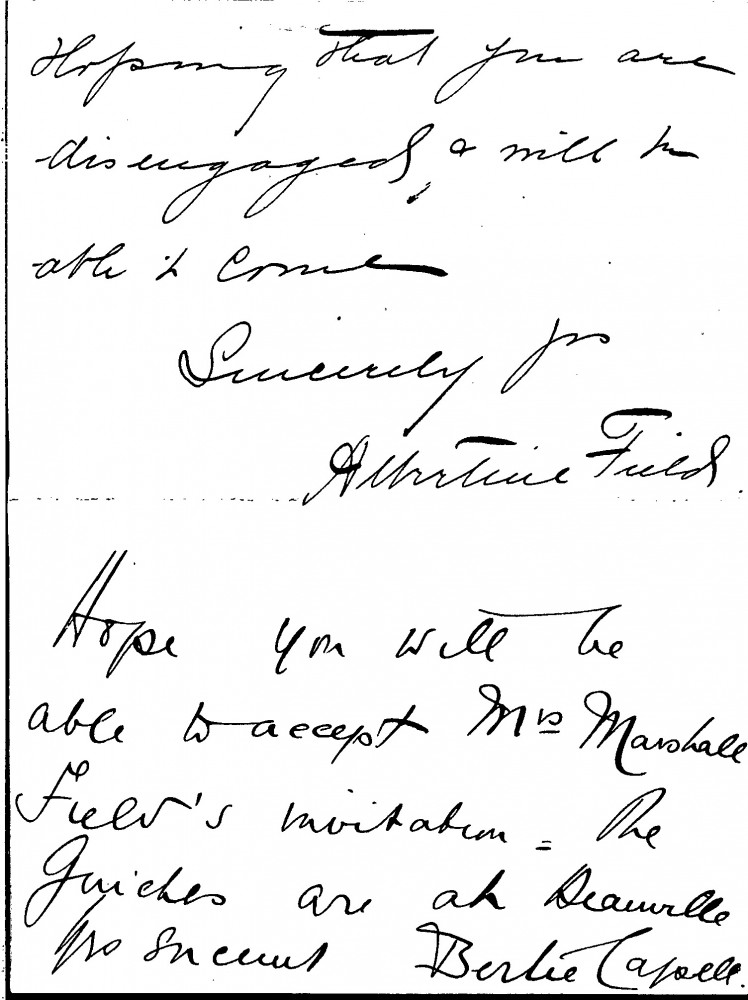 Hoping that you are
disengaged, & will be
able to come
Sincerely yrs
Albertine Field.
Hope you will be
able to accept Mrs Marshall
Field's invitation = The
Guiches are at Deauville
Yrs sincerely Bertie Capell.